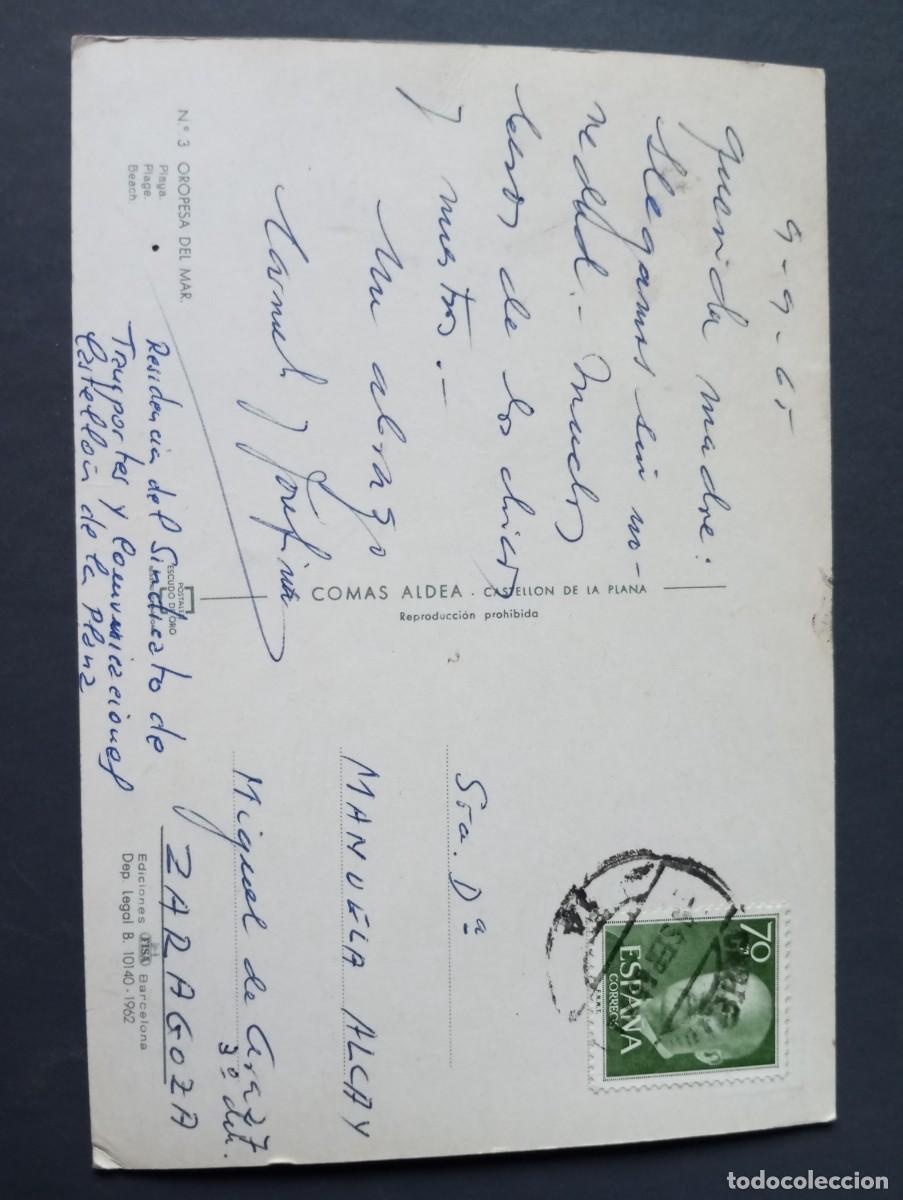 9-9-65
Querida madre:
Llegamos sin no-
vedad.- Muchos
besos de los chicos
y nuestros.-
Un abrazo
Manuel y Josefina
Nº 3 OROPESA DEL MAR.
Playa.
Plage.
Beach.
Residencia del Sindicato de
Transportes y Comunicaciones
Castellón de la Plana
POSTALES
ESCUDO D'ORO
COMAS ALDEA. CASTELLON DE LA PLANA
Reproducción prohibida
70
ESPAÑA
CORREOS
Sra. Dª
MANUELA ALCAY
Miguel de Ara 27
3º dch.
ZARAGOZA
Ediciones FISA Barcelona
Dep. Legal B. 10140-1962
todocoleccion